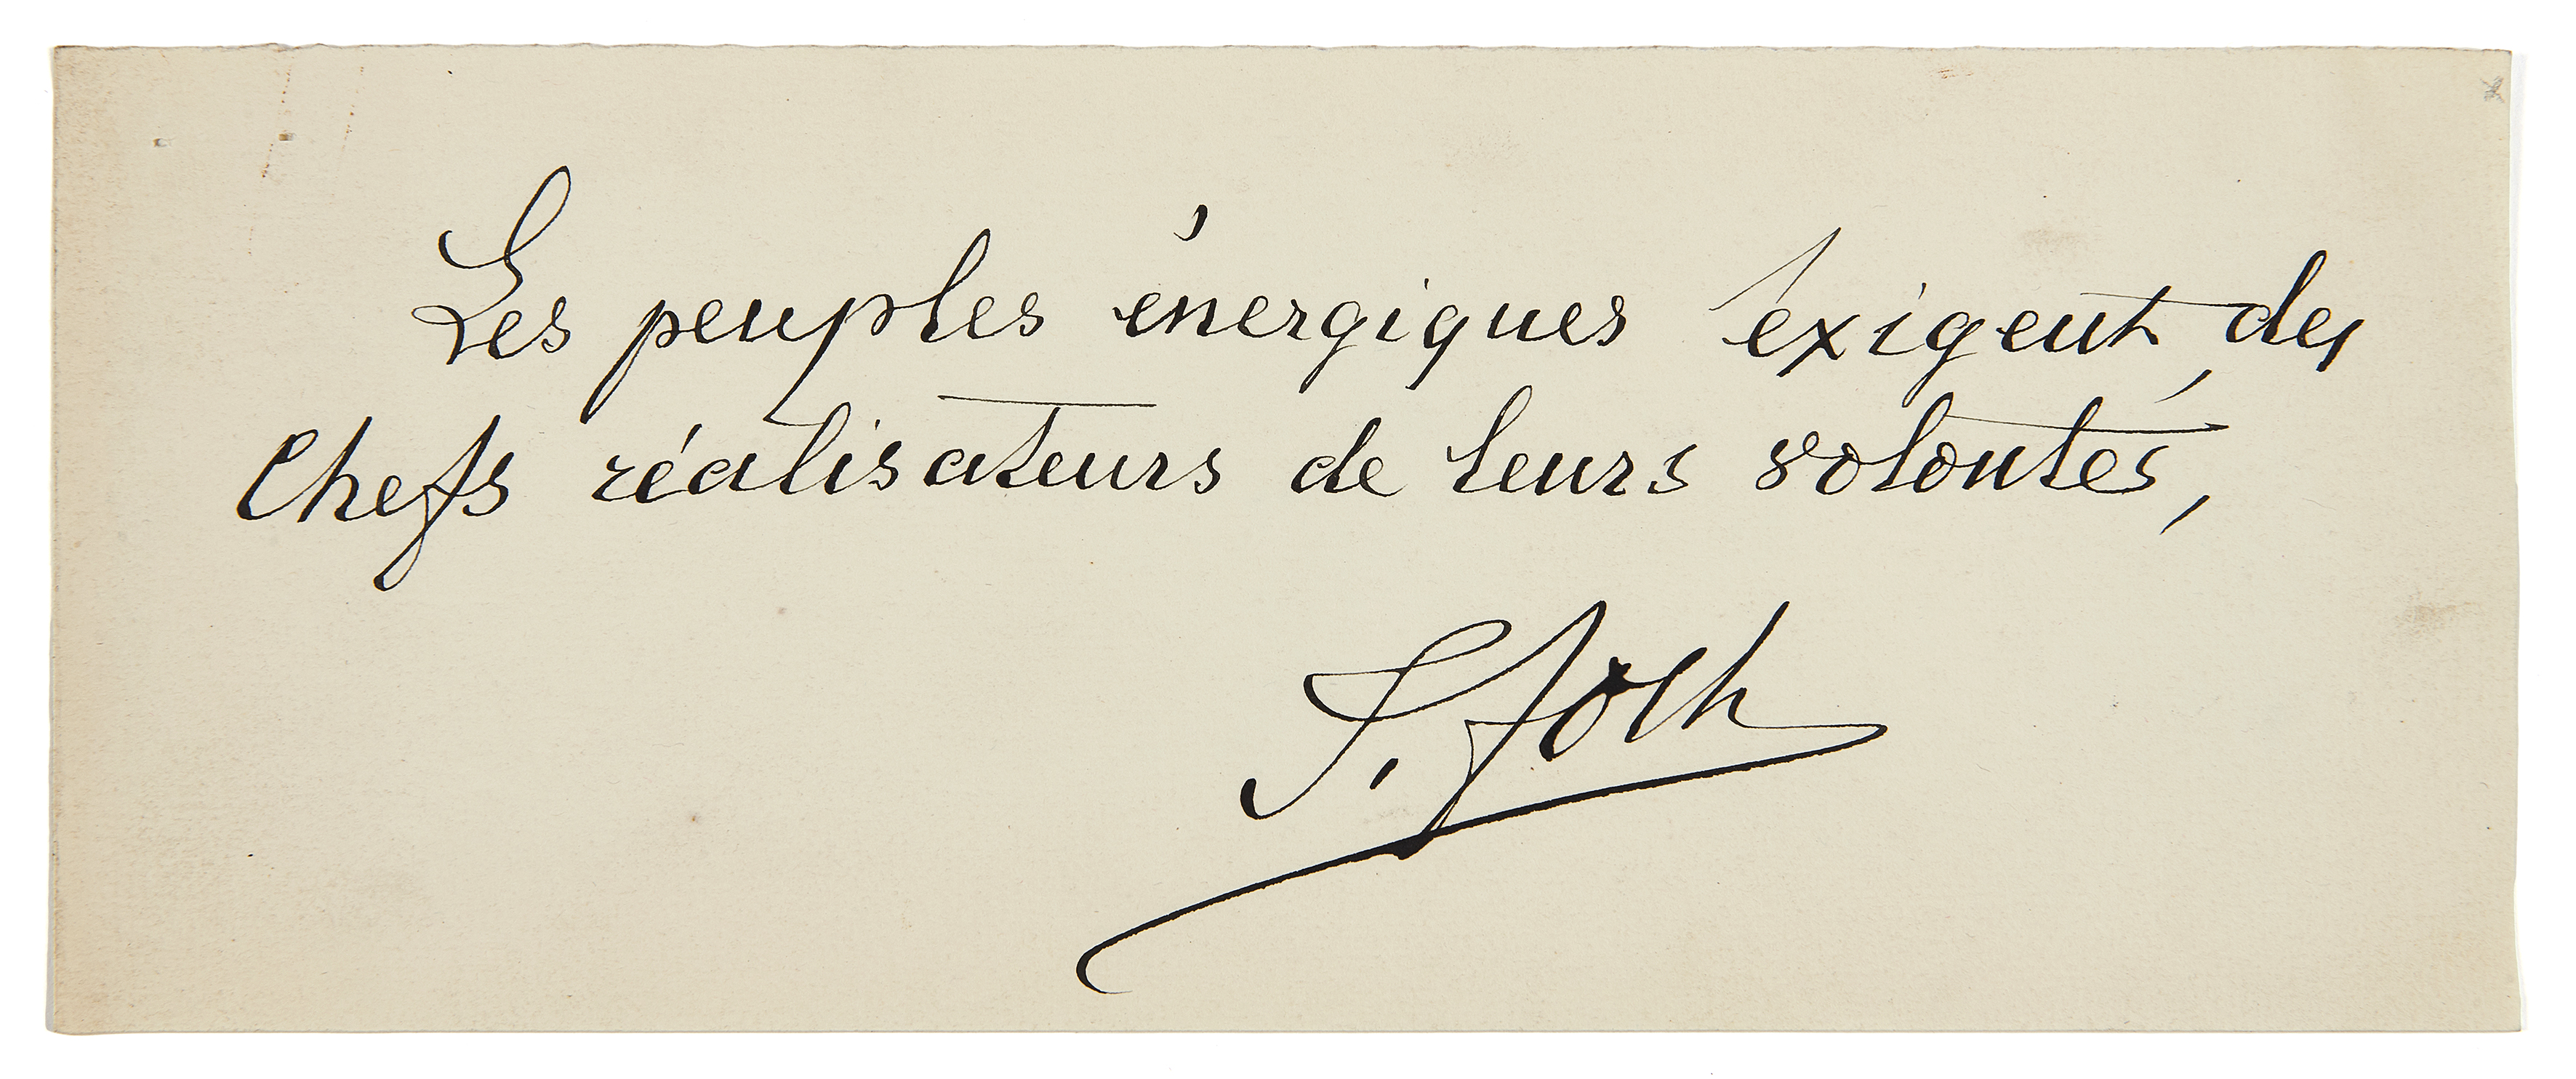 Les peuples énergiques exigent des
Chefs réalisateurs de leurs volontés,
F. Foch